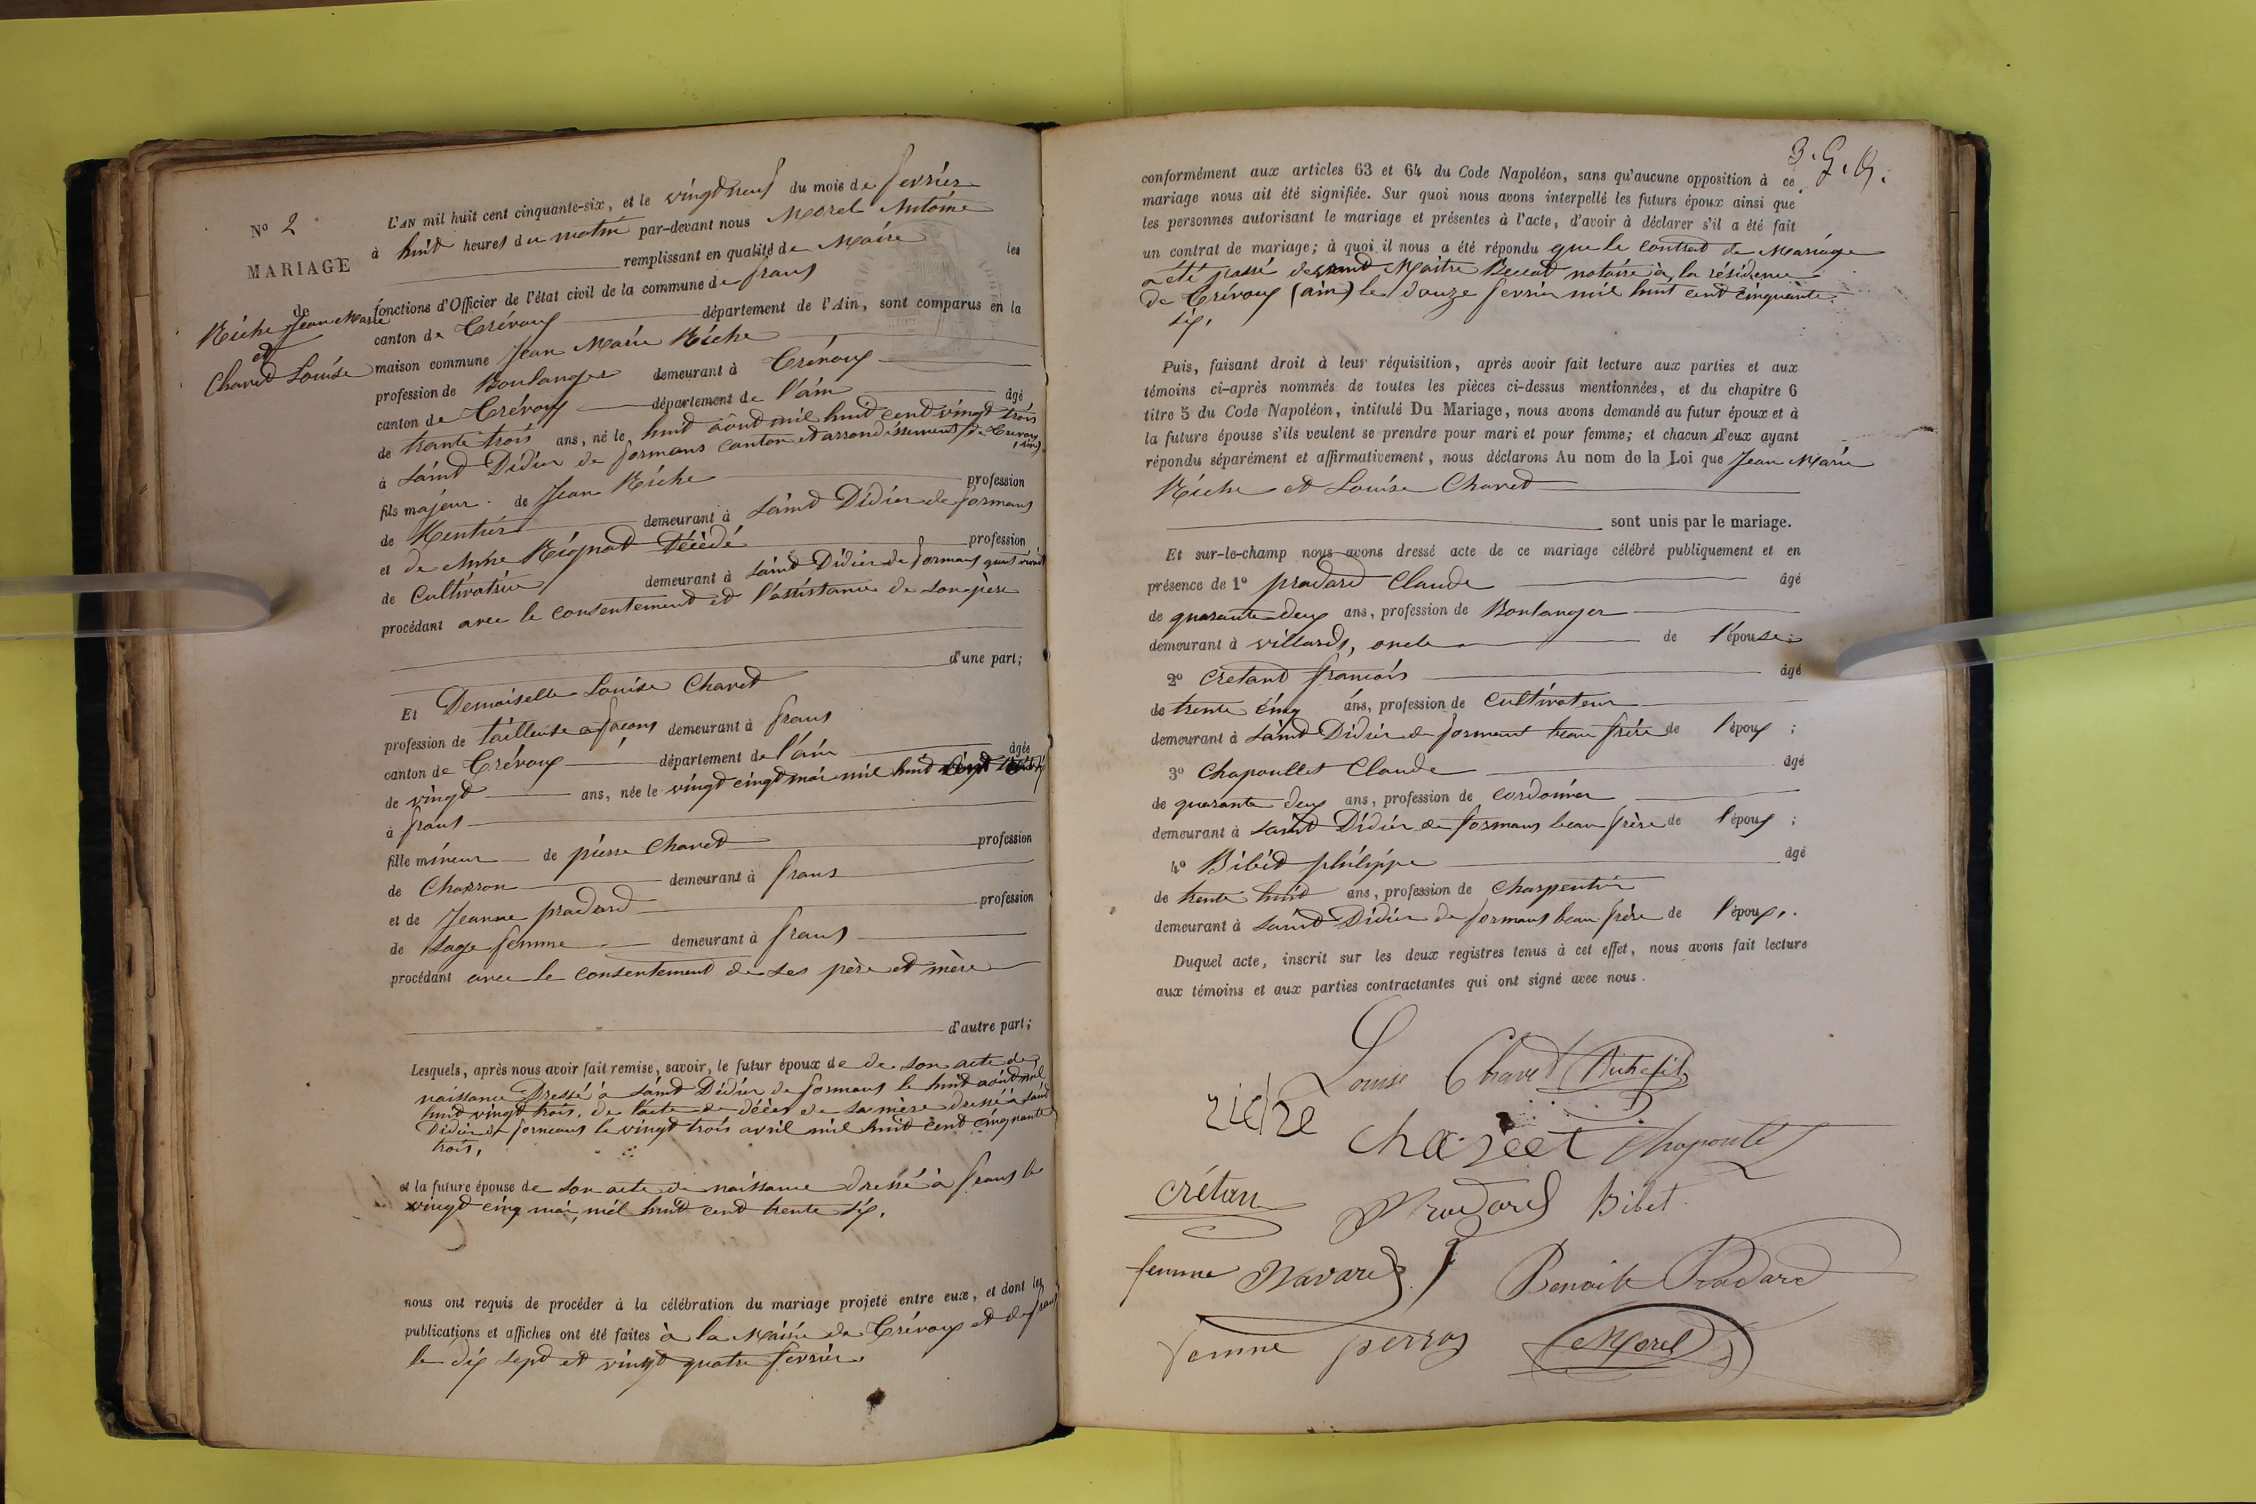 N° 2
MARIAGE
de
Riche Jean Marie
et
Chavet Louise
L'AN mil huit cent cinquante-six, et le vingt neuf du mois de fevrier
à huit heures du matin par-devant nous Morel Antoine
remplissant en qualité de Maire les
fonctions d'Officier de l'état civil de la commune de frans
canton de Trévoux département de l'Ain, sont comparus en la
maison commune Jean Marie Riche
profession de Boulanger demeurant à Trévoux
canton de Trévoux département de l'ain âgé
de trante trois ans, né le huit aôut mil huit cent vingt trois
à saint Didier de formans canton et arrondissement de Trevoux
(ain).
fils majeur de Jean Riche profession
de Rentier demeurant à saint Didier de formans
et de Anne Rignat Décédé profession
de Cultivatrice demeurant à saint Didier de formans
procédant avec le consentement et l'assistance de son père
d'une part;
Et Demoiselle Louise Chavet
profession de tailleuse a façons demeurant à frans
canton de Trévoux département de l'ain âgée
de vingt ans, née le vingt cinq mai mil huit cent
à frans
fille mineur de pierre Chavet profession
de Charron demeurant à frans
et de Jeanne pradard profession
de sage femme demeurant à frans
procédant avec le consentement de ses père et mère
d'autre part;
Lesquels, après nous avoir fait remise, savoir, le futur époux de de son acte de
naissance Dressé à saint Didier de formans le huit août mil
huit vingt trois. de l'acte de décès de sa mère dressé à saint
Didier de formans le vingt trois avril mil huit cent cinquante
trois,
et la future épouse de son acte de naissance dressé à frans le
vingt cinq mai, mil huit cent trente six.
nous ont requis de procéder à la célébration du mariage projeté entre eux, et dont les
publications et affiches ont été faites à la Mairie de Trévoux et de frans
le dix sept et vingt quatre fevrier.
conformément aux articles 63 et 64 du Code Napoléon, sans qu'aucune opposition à ce
mariage nous ait été signifiée. Sur quoi nous avons interpellé les futurs époux ainsi que
les personnes autorisant le mariage et présentes à l'acte, d'avoir à déclarer s'il a été fait
un contrat de mariage; à quoi il nous a été répondu que le contrat de Mariage
a été passé devant Maître notaire à la résidence
de Trévoux (ain) le douze fevrier mil huit cent cinquante
six,
Puis, faisant droit à leur réquisition, après avoir fait lecture aux parties et aux
témoins ci-après nommés de toutes les pièces ci-dessus mentionnées, et du chapitre 6
titre 5 du Code Napoléon, intitulé Du Mariage, nous avons demandé au futur époux et à
la future épouse s'ils veulent se prendre pour mari et pour femme; et chacun d'eux ayant
répondu séparément et affirmativement, nous déclarons Au nom de la Loi que Jean Marie
Riche et Louise Chavet
sont unis par le mariage.
Et sur-le-champ nous avons dressé acte de ce mariage célébré publiquement et en
présence de 1° pradard Claude âgé
de quarante deux ans, profession de Boulanger
demeurant à villards, oncle de l'épouse;
2° Cretant francois âgé
de trente cinq ans, profession de cultivateur
demeurant à saint Didier de formans beau frère de l'époux ;
3° Chapoullet Claude âgé
de quarante deux ans, profession de cordonier
demeurant à saint Didier de formans beau frère de l'époux ;
4° Bibet philippe âgé
de trente huit ans, profession de charpentier
demeurant à saint Didier de formans beau frère de l'époux.
Duquel acte, inscrit sur les deux registres tenus à cet effet, nous avons fait lecture
aux témoins et aux parties contractantes qui ont signé avec nous.
Louise Chavet Riche fils
riche chavet Chapoullet
crétan Pradard Bibet
femme Navaret Benoite Pradard
femme perras Morel